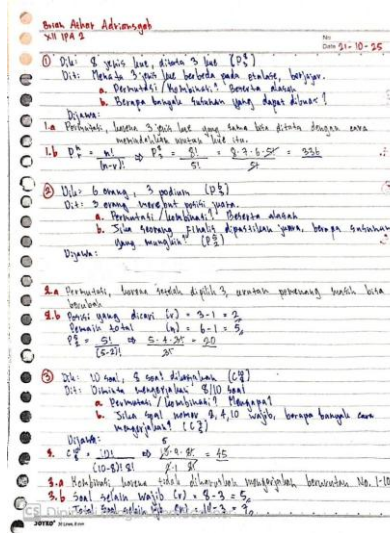 Brian Athar Adriansyah
XII IPA 2
No
Date 21-10-25
① Dik: 8 jenis kue, ditata 3 kue (P⁸₃)
Dit: Menata 3 jenis kue berbeda pada etalase, berjajar.
a. Permutasi / Kombinasi? Beserta alasan
b. Berapa banyak susunan yang dapat dibuat?
Dijawab:
1.a Permutasi, karena 3 jenis kue yang sama bisa ditata dengan cara
urutan kue itu.
1.b Pⁿᵣ = n!/(n-r)! ⇒ P⁸₃ = 8!/5! ⇒ 8·7·6·5!/5! = 336
② Dik: 6 orang, 3 podium (P⁶₃)
Dit: 3 orang posisi juara.
a. Permutasi / kombinasi? Beserta alasan
b. Jika seorang finalis dipastikan juara, berapa susunan
yang mungkin? (P⁵₂)
Dijawab:
2.a Permutasi, karena setelah dipilih 3, urutan pemenang masih bisa
berubah
2.b Posisi yang dicari (r) = 3-1 = 2
Pemain total (n) = 6-1 = 5
P⁵₂ = 5!/(5-2)! ⇒ 5·4·3!/3! = 20
③ Dik: 10 soal, 8 soal dikerjakan (C¹⁰₈)
Dit: Diminta mengerjakan 8/10 soal
a. Permutasi / kombinasi? Mengapa?
b. Jika soal nomor 3, 4, 10 wajib, berapa banyak cara
mengerjakan? (C⁷₅)
Dijawab:
3. C¹⁰₈ = 10!/(10-8)! 8! ⇒ 10·9·8!/2·1·8! = 45
3.a Kombinasi karena tidak diharuskan mengerjakan berurutan No. 1-10
3.b Soal selain wajib (r) = 8-3 = 5
Total soal selain wajib (n) = 10-3 = 7
CS
JOYKO